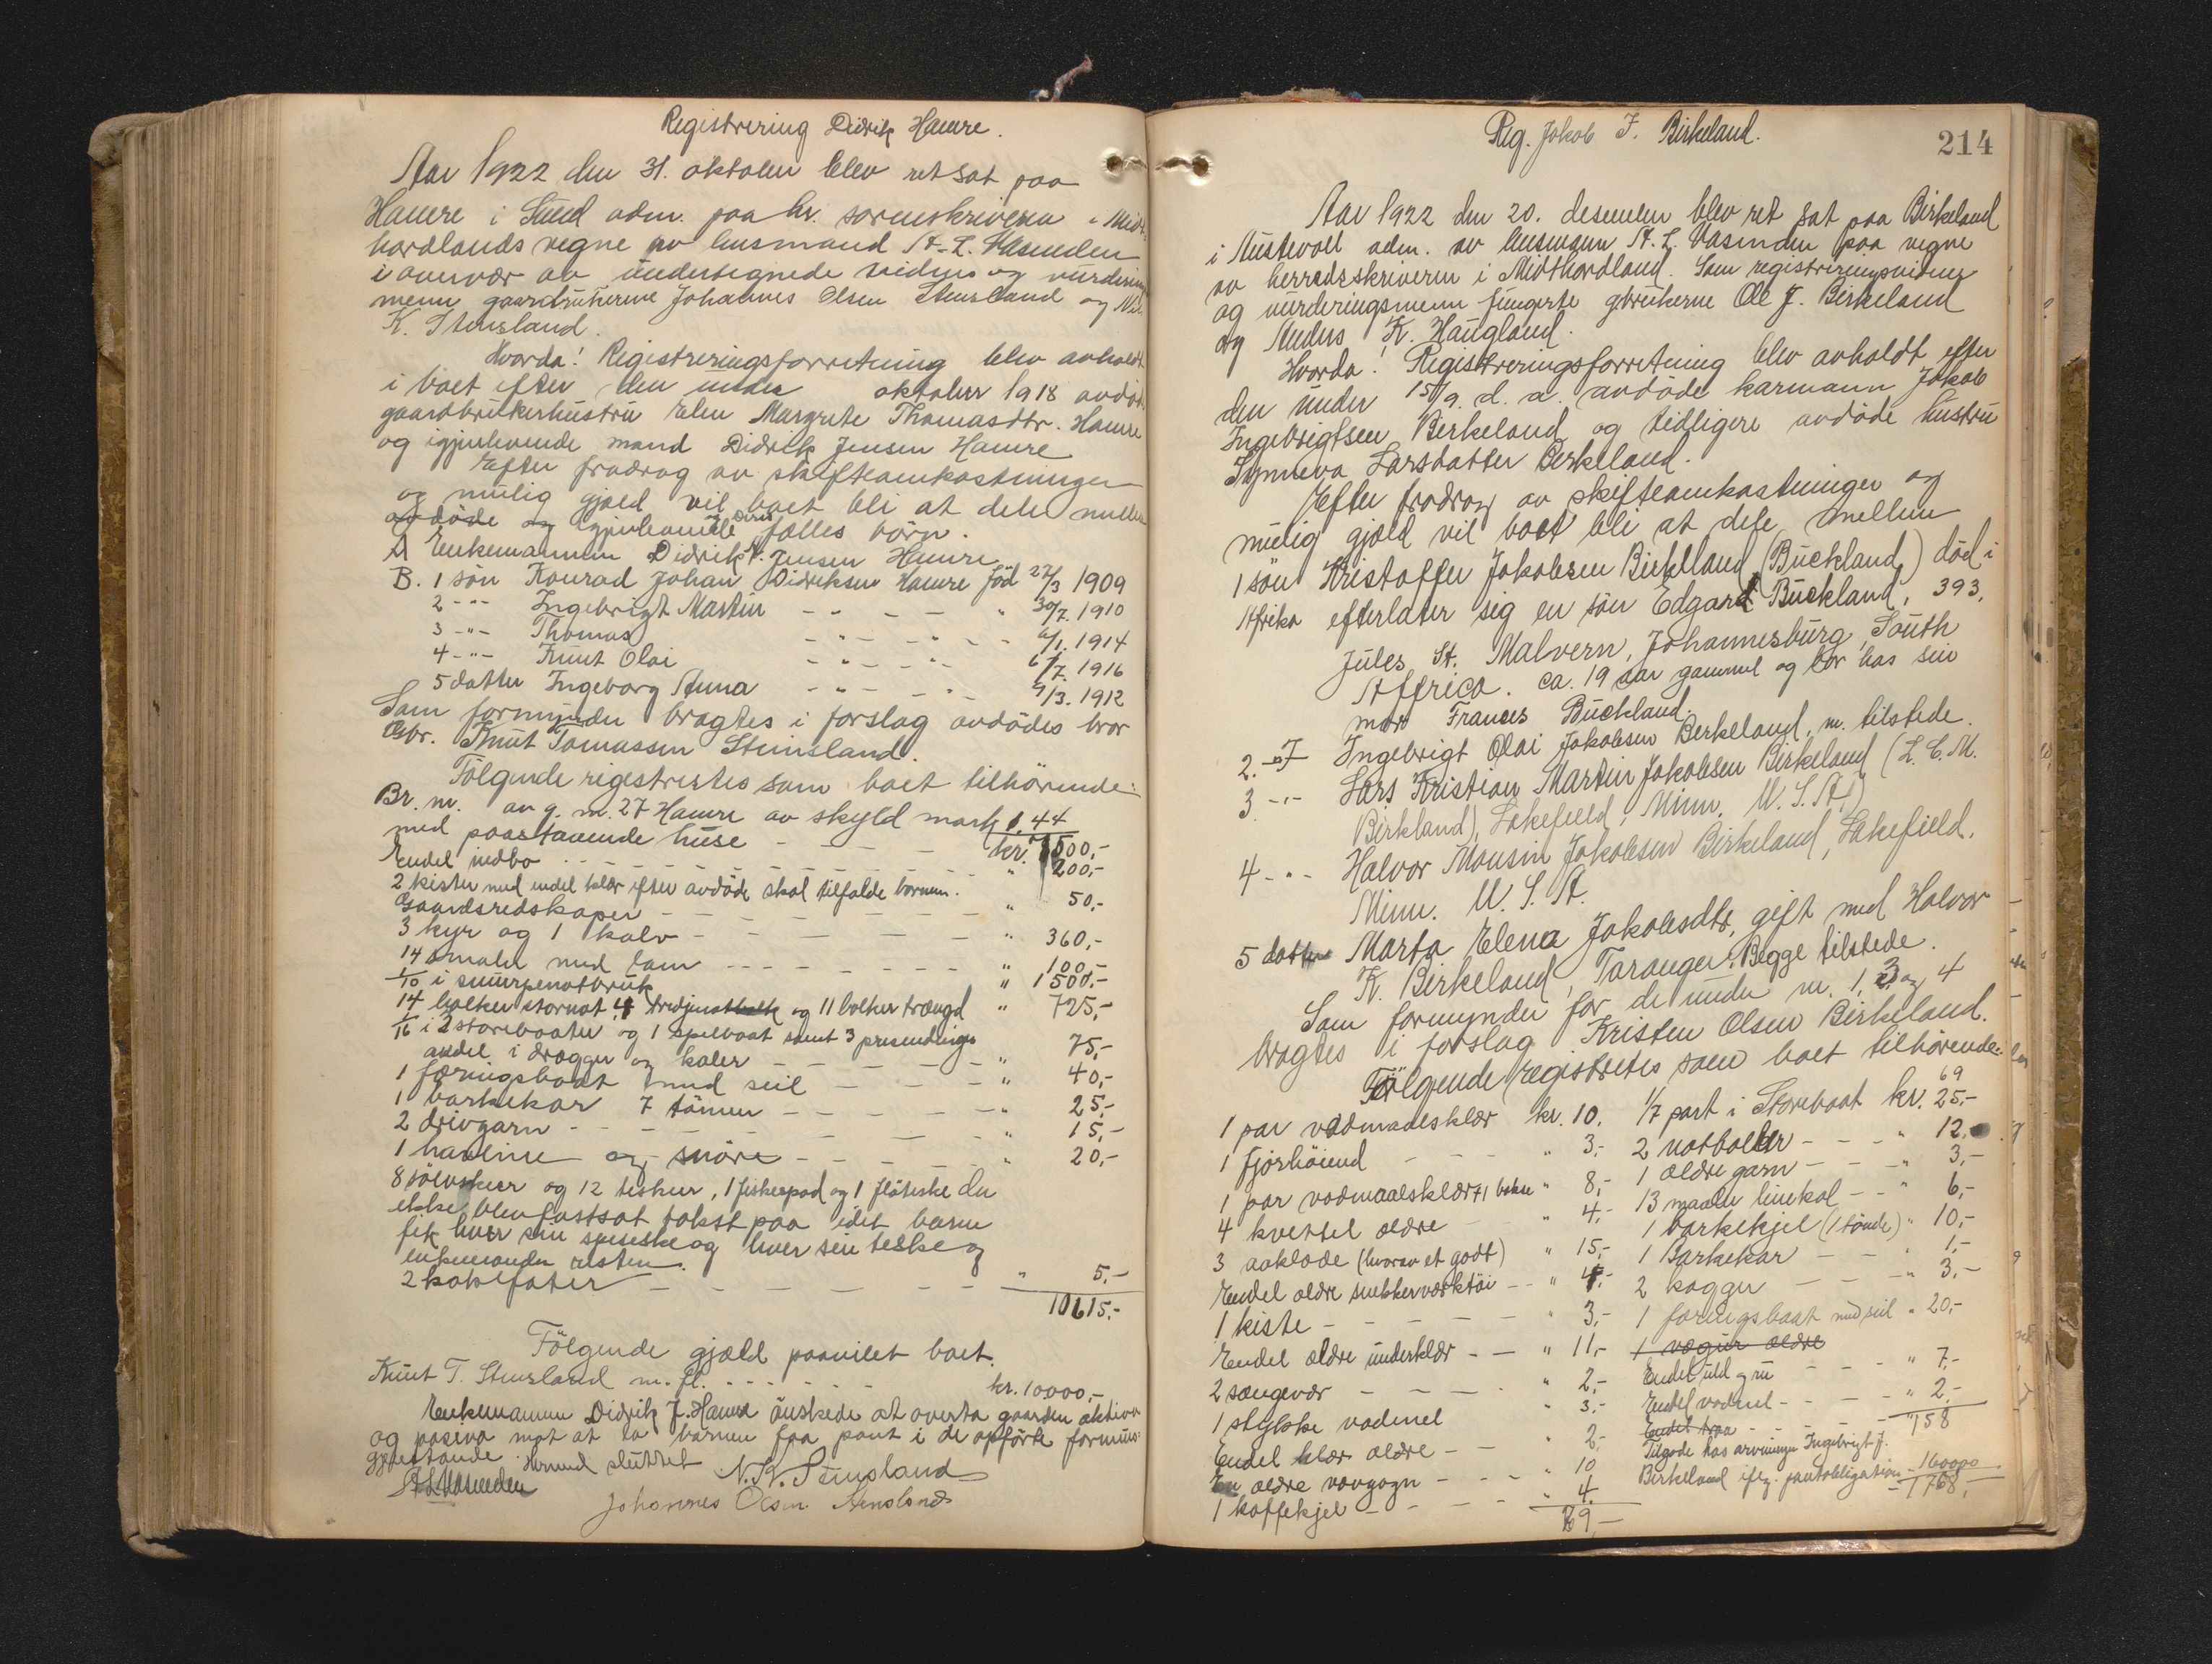 Registrering Didrik Hamre.
Aar 1922 den 31. oktober blev ret sat paa
Hamre i Sund adm. paa hr. sorenskriveren i Midt-
hordlands vegne av lensmand A. L. Vasenden
i overvær av undertegnede vidner og vurderings
menn gaardbrukerne Johannes Olsen Stensland og Nils
K. Stensland.
Hvorda! Registreringsforretning blev avholdt
i boet efter den under oktober 1918 avdøde
gaardbrukerhustru Elen Margrete Thomasdtr. Hamre
og igjenlevende mand Didrik Jensen Hamre
Efter fradrag av skifteomkostninger
og mulig gjæld vil boet bli at dele mellem
avdøde og gjenlevende og deres fælles börn.
A Enkemannen Didrik J. Jensen Hamre
B. 1 sön Konrad Johan Didriksen Hamre föd 27/3 1909
2 -"- Ingebrigt Martin - " - - " 30/7. 1910
3 -"- Thomas - " - " - - 6/1. 1914
4 -"- Knut Olai - " - - " - 6/7. 1916
5 datter Ingeborg Anna - " - - " - 9/3. 1912
Som formynder bragtes i forslag avdödes bror
Gbr. Knut Tomassen Steinsland.
Fölgende registrertes som boet tilhörende:
Br. nr. av g. nr. 27 Hamre av skyld mark 1.44
med paastaaende huse - - - - kr. 7500,-
Endel indbo - - - - " 200,-
2 kister med endel klær efter avdöde skal tilfalde barnen.
Gaardsredskaper - - - - " 50,-
3 kyr og 1 kalv - - - - " 360,-
14 smaler med lam - - - - " 100,-
1/10 i snurpenotbruk " 1500,-
14 bolker stornot, 4 tredjenot og 11 bolker trængd " 725,-
1/16 i 2 storebaater og 1 spelbaat samt 3 presendinger
andel i drægger og kaler - - - " 75,-
1 færingsbaat med seil - - - " 40,-
1 barkekar 7 tönner - - - " 25,-
2 drivgarn - - - - " 15,-
1 havline og snöre - - - " 20,-
8 sölvskeer og 12 teskeer, 1 fiskespad og 1 flöteske der
ikke blev fastsat takst paa idet barna
fik hver sin spiseske og hver sin teske og
enkemanden resten.
2 kakefater - - - - " 5,-
10615.-
Fölgende gjæld paavilet boet.
Knut T. Stensland m. fl. - - - - kr. 10000,-
Enkemannen Didrik J. Hamre önskede at overta gaarden aktiva
og pasiva mot at la barnene faa pant i de opförte formues-
gjenstande. Hermed sluttet
A L Vasenden N. K. Steinsland
Johannes Olsen Stensland
Reg. Jakob I. Birkeland.
214
Aar 1922 den 20. desember blev ret sat paa Birkeland
i Austevoll adm. av lensmann A. L. Vasenden paa vegne
av herredsskriveren i Midthordland. Som registreringsvidner
og vurderingsmenn fungerte gbrukerne Ole J. Birkeland
og Anders K. Haugland.
Hvorda! Registreringsforretning blev avholdt efter
den under 15/9. d. a. avdöde kårmann Jakob
Ingebrigtsen Birkeland og tidligere avdöde hustru
Synneva Larsdatter Birkeland.
Efter fradrag av skifteomkostninger og
mulig gjæld vil boet bli at dele mellem
1 sön Kristoffer Jakobsen Birkeland (Buckland) död i
Afrika efterlater sig en sön Edgard Buckland, 393,
Jules St. Malvern, Johannesburg, South
Affrica. ca. 19 aar gammel og bor hos sin
mor Frances Buckland.
2. -"- Ingebrigt Olai Jakobsen Berkeland, m. tilstede.
3 -"- Lars Kristian Martin Jakobsen Birkeland (L. C. M.
Birkland), Lakefield, Minn. U. S. A.)
4 -"- Halvor Monsin Jakobsen Birkeland, Lakefield.
Minn. U. S. A.
5 datter Marta Elena Jakobsdtr, gift med Halvor
K. Birkeland, Taranger. Begge tilstede.
Som formynder for de under nr. 1, 3 og 4
bragtes i forslag Kristen Olsen Birkeland.
Fölgende registretes som boet tilhörende:
1 par vadmadesklær kr. 10.
1 fjorhöiend - - " 3,-
1 par vadmaalsklær + 1 bokse " 8,-
4 kvettel ældre " 4,-
3 aaklæde (hvorav et godt) " 15,-
Endel ældre snekkerværktöi - - " 4,-
1 kiste - - - - " 3,-
Endel ældre underklær - - " 11,-
2 sængevær - - - " 2,-
1 stykke vadmel " 3,-
Endel klær ældre - - " 2,-
En ældre vovgogn - - " 10
1 kaffekjel - - - " 4.
79,-
69
1/7 part i Storebaat kr. 25,-
2 notbolker - - - " 12,
1 ældre garn - - " 3,-
13 maaler linekal - - " 6,-
1 barkekjel (1 tönde) " 10,-
1 Barkekar - - " 1,-
2 kagger - - - " 3,-
1 færingsbaat med seil " 20,-
1 vægur ældre
Endel uld og ru - - " 7,-
Endel vadmel - - - " 2,-
Endel traa - - - 158
Tilgode hos arvingen Ingebrigt J.
Birkeland ifg. pantobligation - 1600,00
- 1768,